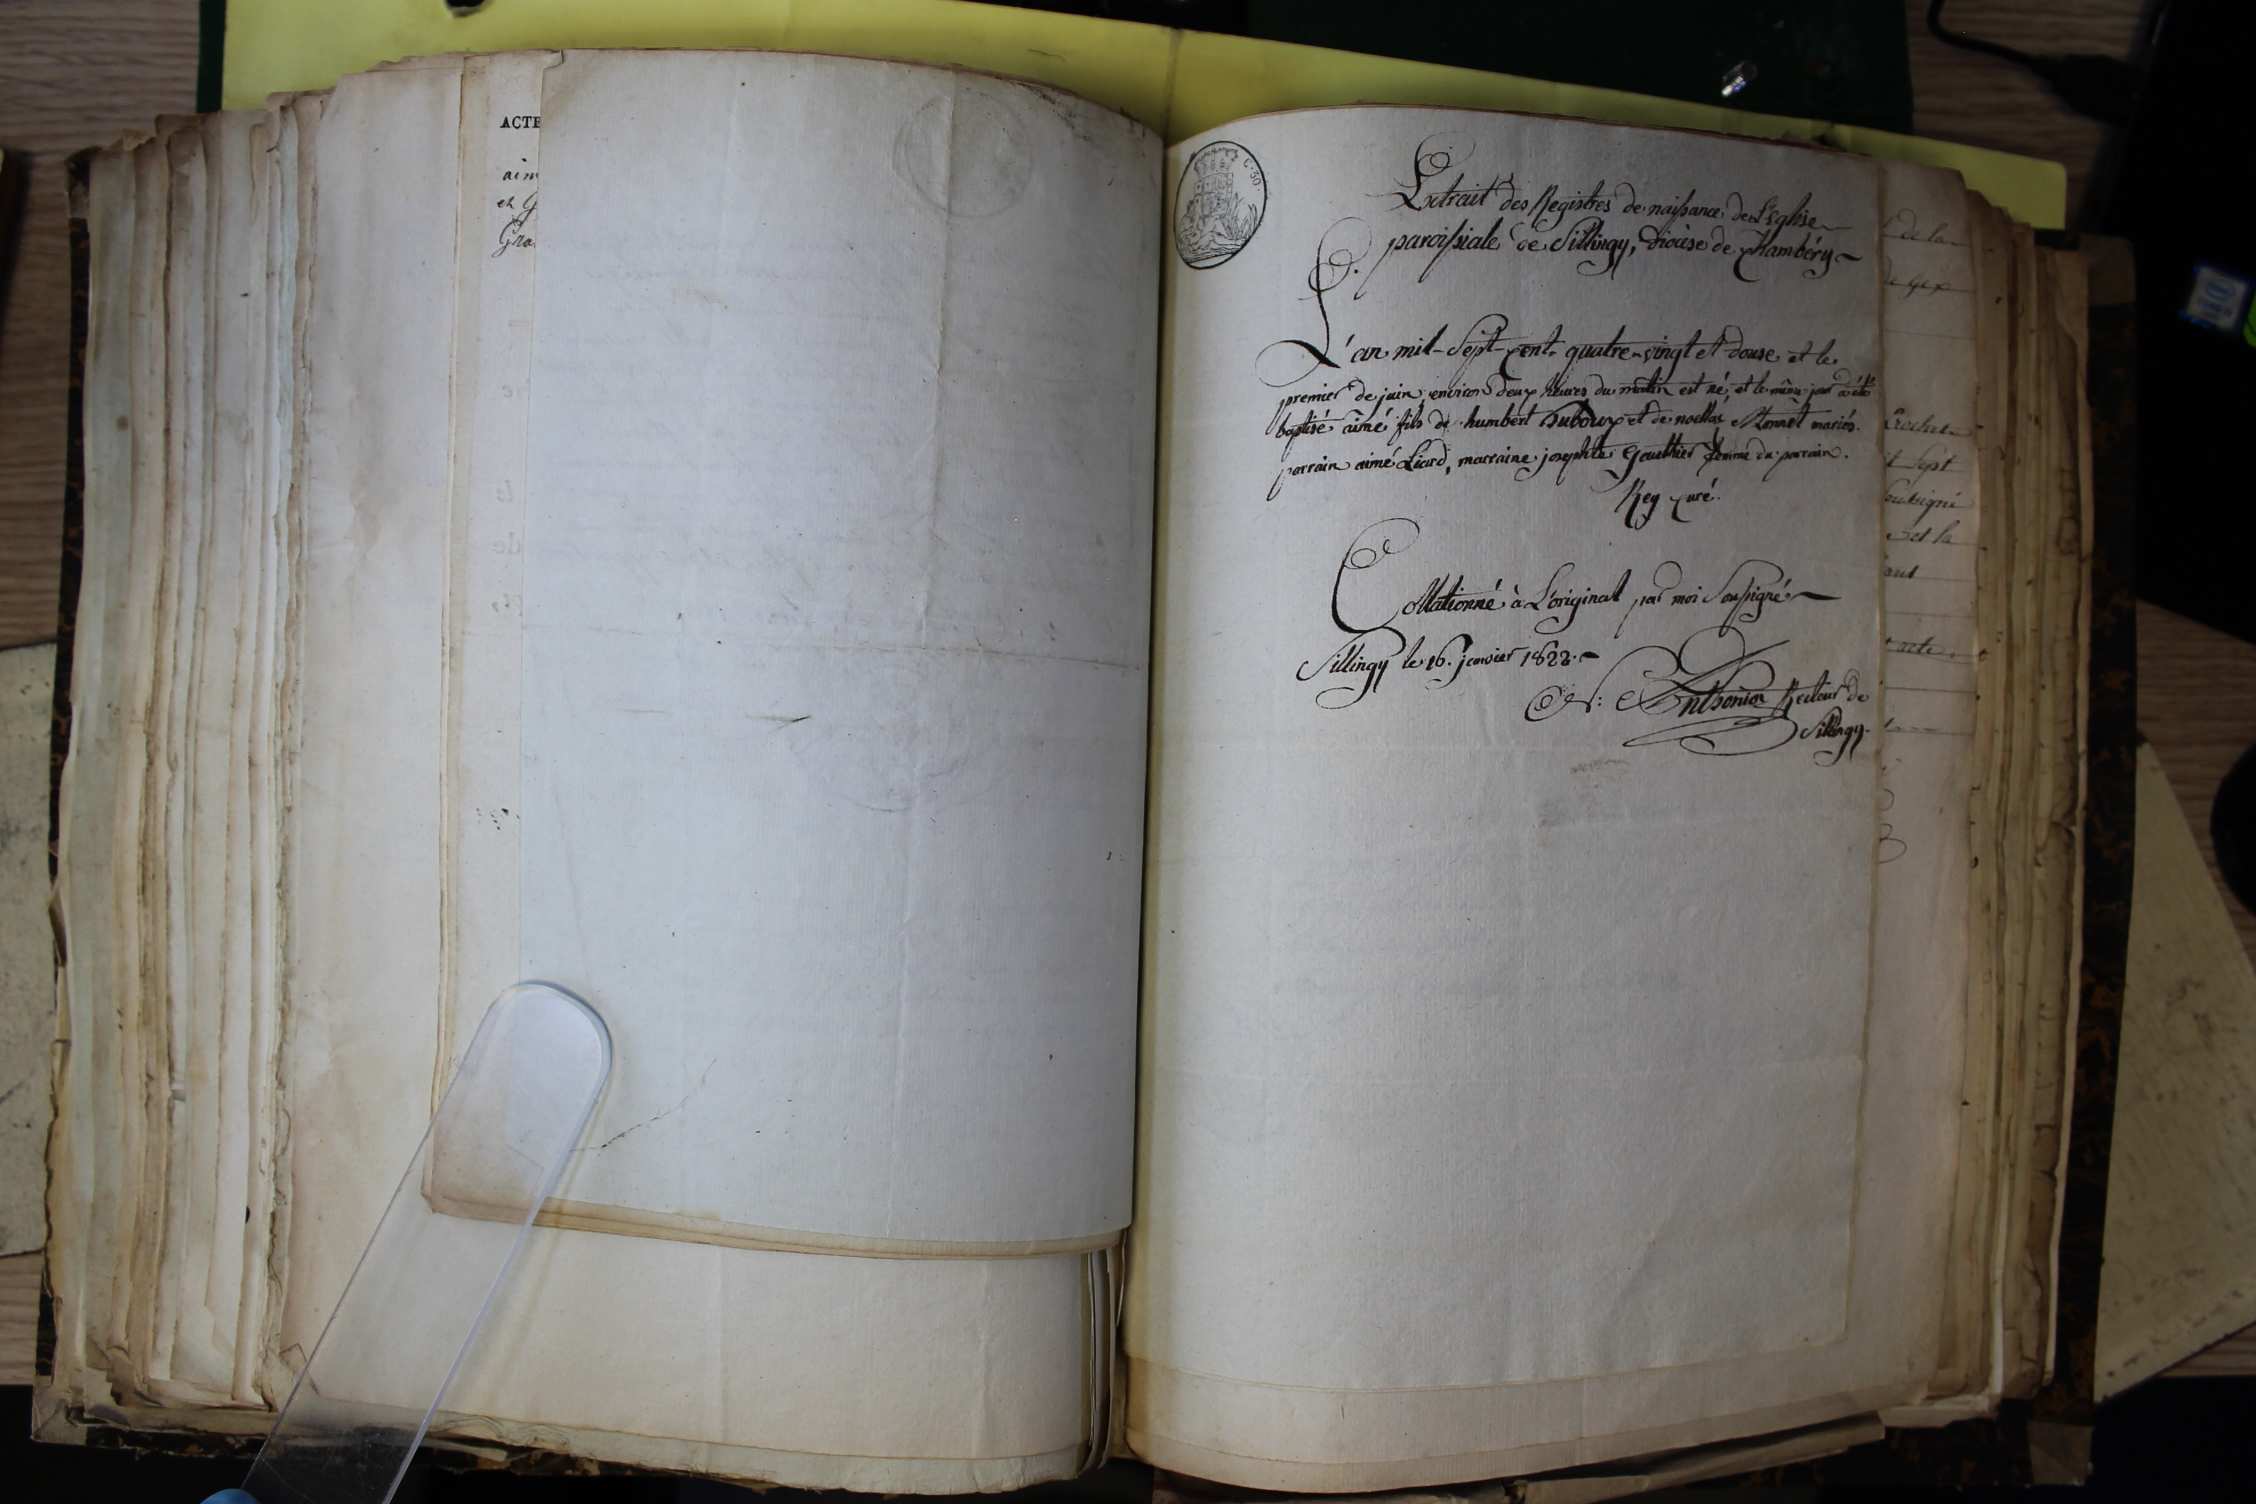 ACTE
aim
et G
Gra
C. 30.
Extrait des Registres de naissance de L'Eglise
paroissiale de Sillingy, Diocèse de Chambéry
L'an mil-Sept-Cent-quatre-vingt et douse et le
premier de juin, environ deux heures du matin est né, et le même jour a été
baptisé aimé fils de humbert Duboux et de Monnet mariés.
parrain aimé Liard, marraine josephte Gauthier femme du parrain.
Rey Curé.
Collationné à L'original par moi Soussigné
Sillingy le 16. janvier 1822.
Anthonioz Recteur de
Sillingy.
de la
de gex
t Sept
Soussigné
et la
acte